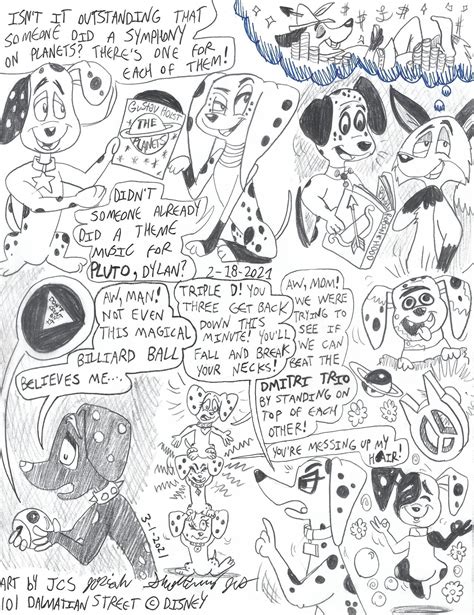 ISN'T IT OUTSTANDING THAT
SOMEONE DID A SYMPHONY
ON PLANETS? THERE'S ONE FOR
EACH OF THEM!
GUSTAV HOLST
THE
PLANETS
DIDN'T
SOMEONE ALREADY
DID A THEME
MUSIC FOR
PLUTO, DYLAN?
2-18-2021
AW, MAN!
NOT EVEN
THIS MAGICAL
BILLIARD BALL
BELIEVES ME...
TRIPLE D! YOU
THREE GET BACK
DOWN THIS
MINUTE! YOU'LL
FALL AND BREAK
YOUR NECKS!
AW, MOM!
WE WERE
TRYING TO
SEE IF
WE CAN
BEAT THE
DMITRI TRIO
BY STANDING ON
TOP OF EACH
OTHER!
YOU'RE MESSING UP MY
HAIR!
3-1-2021
ART BY JCS
101 DALMATIAN STREET © DISNEY